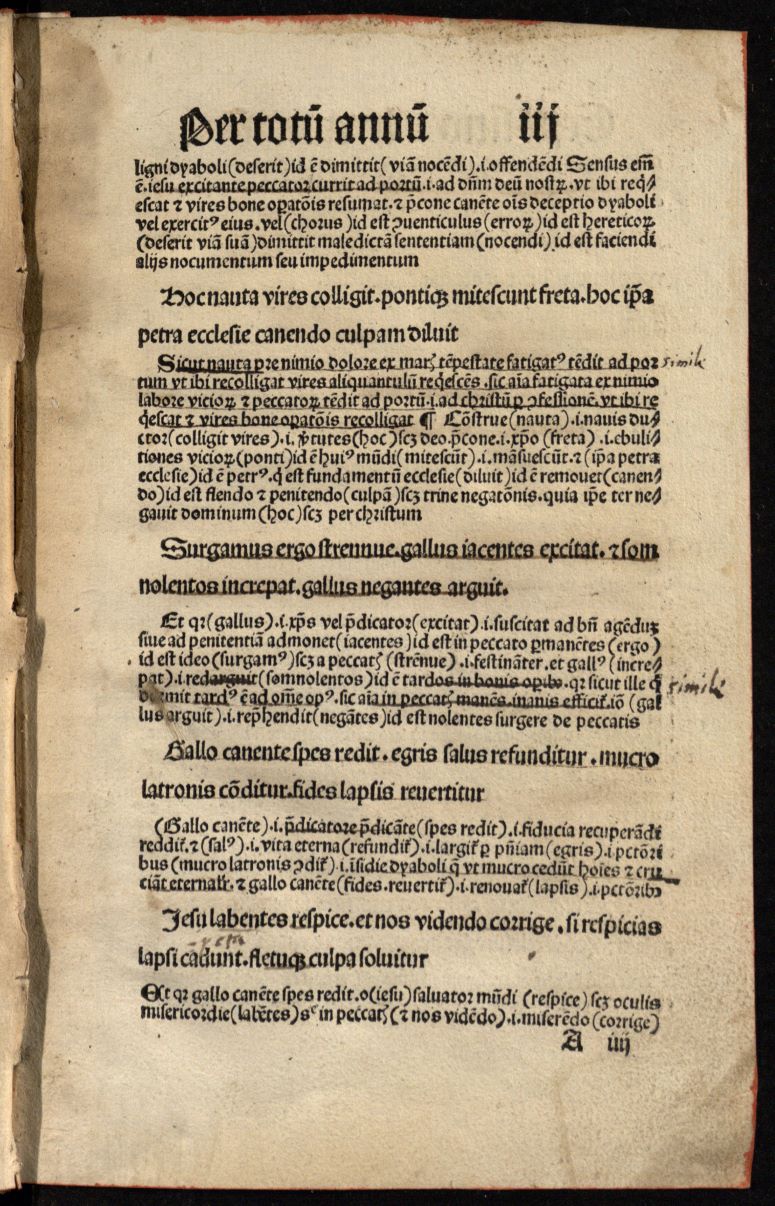 Per totū annū iij
ligni dyaboli (deserit) id ē dimittit (viā nocēdi) .i. offendēdi Sensus em̄
ē. iesu excitante peccator currit ad portū .i. ad dn̄m deū nostrꝝ. vt ibi reqͥ⸗
escat ⁊ vires bone oꝑatōis resumat. ⁊ p̄cone canēte oīs deceptio dyaboli
vel exercitꝰ eius. vel (chorus) id est ꝯuenticulus (erroꝝ) id est hereticoꝝ.
(deserit viā suā) dimittit maledictā sententiam (nocendi) id est faciendi
alijs nocumentum seu impedimentum
Hoc nauta vires colligit. pontiqꝫ mitescunt freta. hoc ip̄a
petra ecclesie canendo culpam diluit
Sicut nauta pre nimio dolore ex marꝭ tēpestate fatigatꝰ tēdit ad por simile
tum vt ibi recolligat vires aliquantulū reqͥescēs. sic aīa fatigata ex nimio
labore vicioꝝ ⁊ peccatoꝝ tēdit ad portū .i. ad christū ꝑ ꝯfessionē. vt ibi re
qͥescat ⁊ vires bone oꝑatōis recolligat ¶ Cōstrue (nauta) .i. nauis du⸗
ctor (colligit vires) .i. v̓tutes (hoc) scꝫ deo p̄cone .i. xp̄o (freta) .i. ebuli⸗
tiones vicioꝝ (ponti) id ē huiꝰ mūdi (mitescūt) .i. māsuescūt. ⁊ (ip̄a petra
ecclesie) id ē petrꝰ. qͥ est fundamentū ecclesie (diluit) id ē remouet (canen⸗
do) id est flendo ⁊ penitendo (culpā) scꝫ trine negatōnis. quia ip̄e ter ne⸗
gauit dominum (hoc) scꝫ per christum
Surgamus ergo strennue. gallus iacentes excitat. ⁊ som
nolentos increpat. gallus negantes arguit.
Et qꝛ (gallus) .i. xp̄s vel p̄dicator (excitat) .i. suscitat ad bn̄ agēduꝫ
siue ad penitentiā admonet (iacentes) id est in peccato ꝑmanētes (ergo)
id est ideo (surgamꝰ) scꝫ a peccatꝭ (strēnue) .i. festināter. et gallꝰ (incre⸗
pat) .i. redarguit (somnolentos) id ē tardos in bonis oꝑibꝰ. qꝛ sicut ille qͥ simile
dormit tardꝰ ē ad om̄e opꝰ. sic aīa in peccatꝭ manēs inanis efficit᷑. iō (gal
lus arguit) .i. rep̄hendit (negātes) id est nolentes surgere de peccatis
Gallo canente spes redit. egris salus refunditur. mucro
latronis cōditur. fides lapsis reuertitur
(Gallo canēte) .i. p̄dicatore p̄dicāte (spes redit) .i. fiducia recuperādi
reddit᷑. ⁊ (salꝰ) .i. vita eterna (refundit᷑) .i. largit᷑ ꝑ pn̄iam (egris) .i. pctōri
bus (mucro latronis ꝯdit᷑) .i. īsidie dyaboli q̄ vt mucro cedūt hoīes ⁊ cru
ciāt eternalr̄. ⁊ gallo canēte (fides. reuertit᷑) .i. renouat᷑ (lapsis) .i. pctōribꝫ
Jesu labentes respice. et nos videndo corrige. si respicias
lapsi cadunt. fletuqꝫ culpa soluitur
Et qꝛ gallo canēte spes redit. o (iesu) saluator mūdi (respice) scꝫ oculis
misericordie (labētes) sͨ in peccatꝭ (⁊ nos vidēdo) .i. miserēdo (corrige)
A iiij